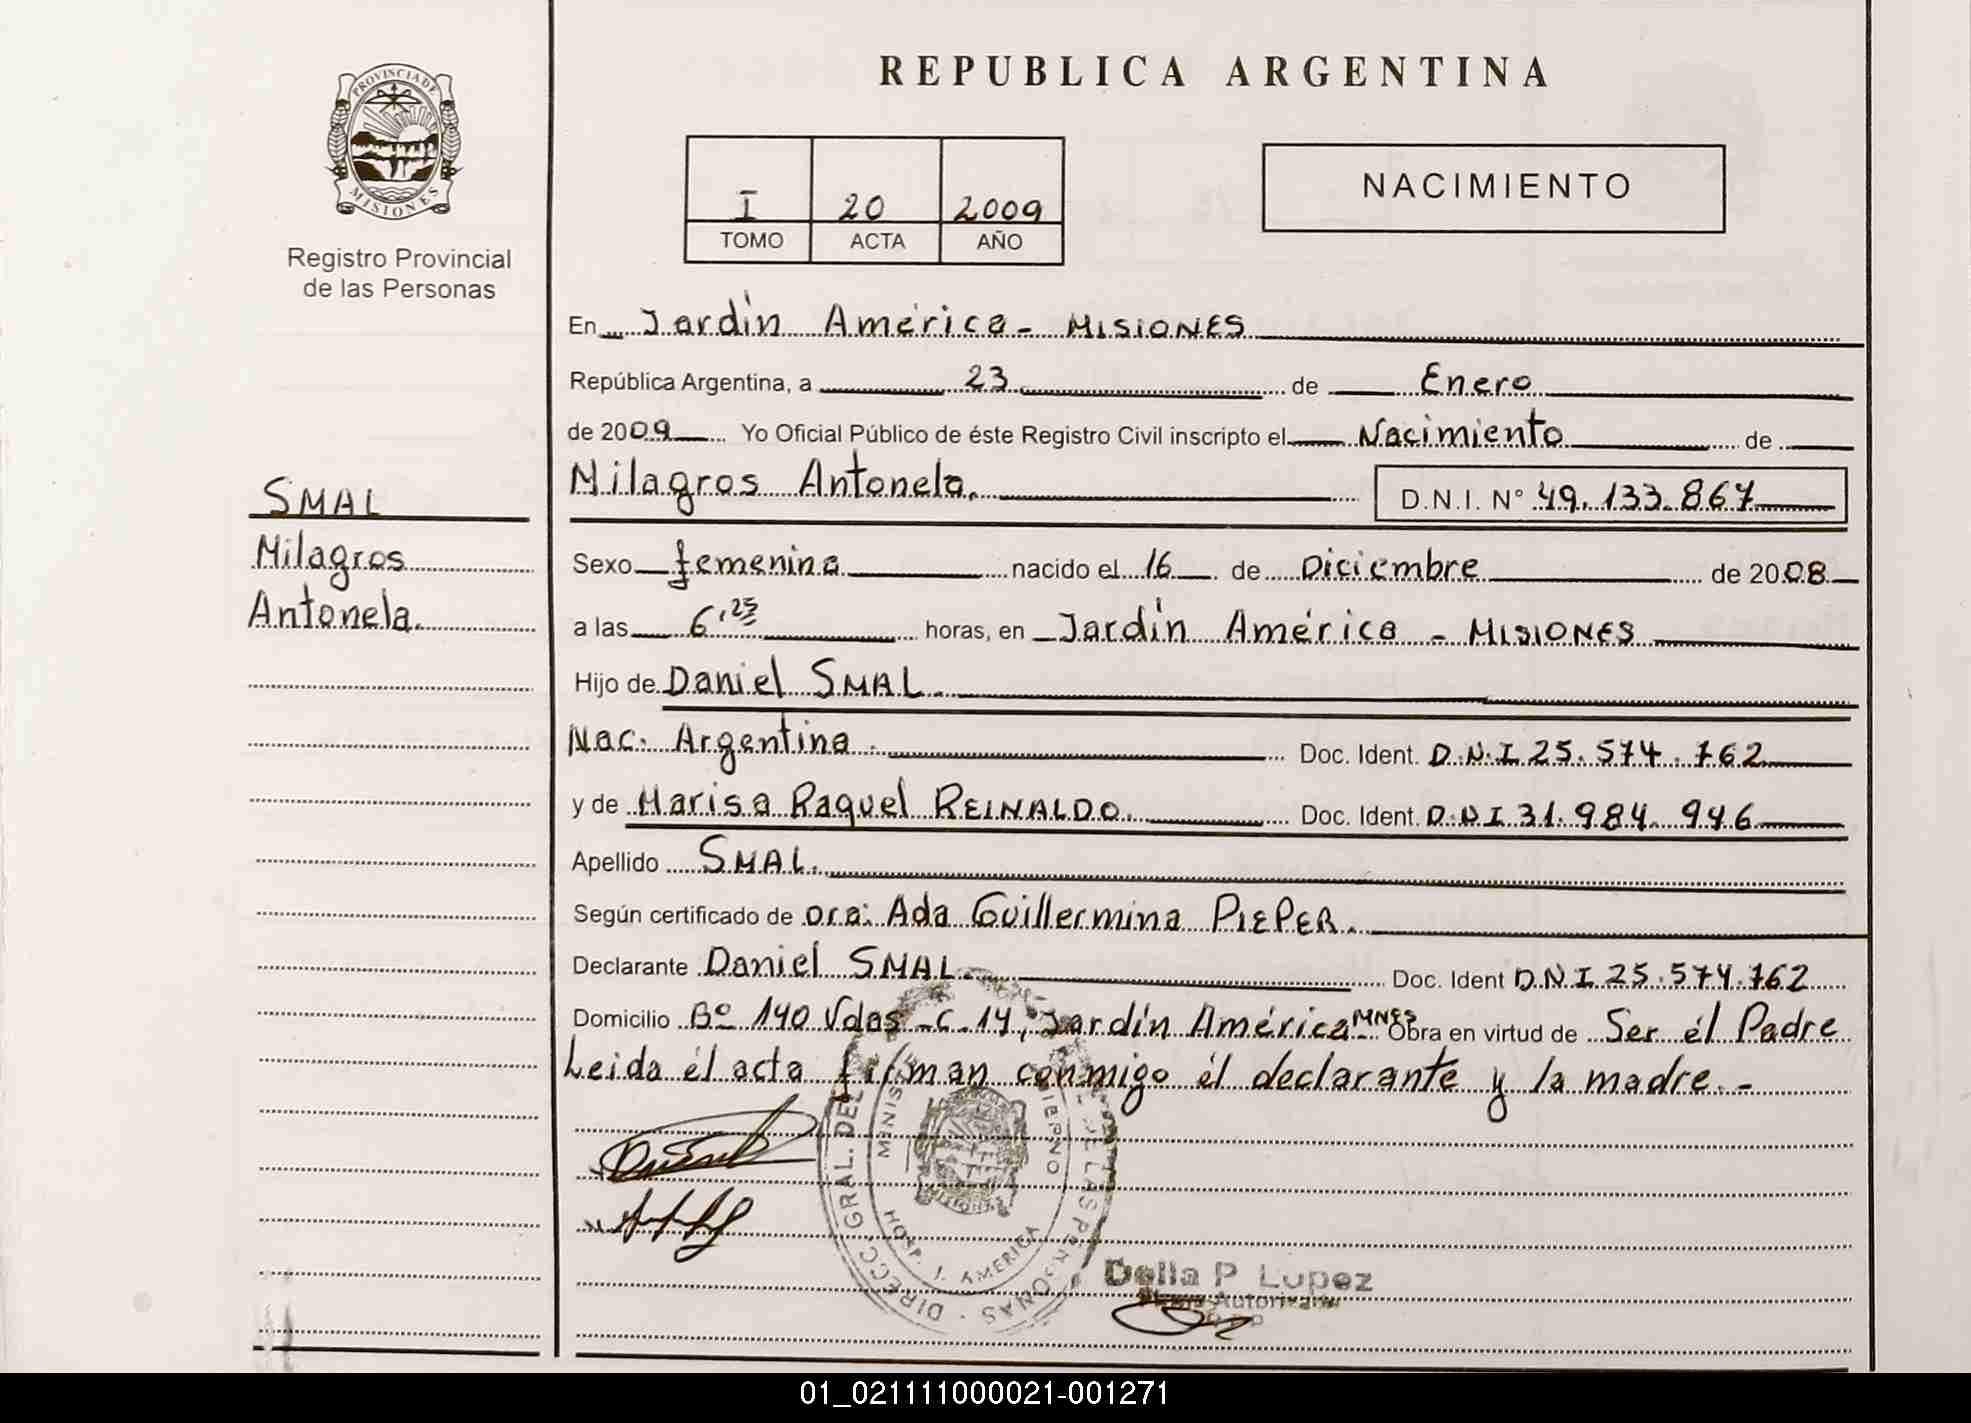 PROVINCIA DE
MISIONES
Registro Provincial
de las Personas
SMAL
Milagros
Antonela.
REPUBLICA ARGENTINA
I 20 2009
TOMO ACTA AÑO
NACIMIENTO
En Jardín América - MISIONES
República Argentina, a 23 de Enero
de 2009 Yo Oficial Público de éste Registro Civil inscripto el Nacimiento de
Milagros Antonela. D.N.I. N° 49.133.867
Sexo femenina nacido el 16 de Diciembre de 2008
a las 6,25 horas, en Jardín América - MISIONES
Hijo de Daniel SMAL.
Nac. Argentina. Doc. Ident. D.N.I 25.574.762
y de Marisa Raquel REINALDO. Doc. Ident. D.N.I 31.984.946
Apellido SMAL.
Según certificado de Dra: Ada Guillermina PIEPER.
Declarante Daniel SMAL. Doc. Ident D.N.I 25.574.762
Domicilio Bº 140 Vdas - C. 14, Jardín América MNES Obra en virtud de Ser él Padre
Leida él acta firman conmigo él declarante y la madre. -
DIRECC. GRAL. DEL DE LAS PERSONAS
HOSP. J. AMERICA
Delia P Lopez
01_021111000021-001271